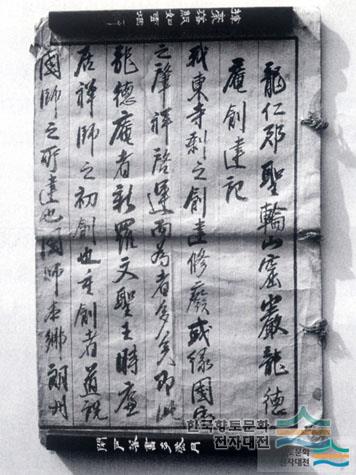 龍仁郡聖輪山窟巖龍德
庵創建記
我東寺刹之創建修廢或緣國家
之肇祥啓運而為者多矣即此
龍德庵者新羅文聖王時廉
居禅師之初創也重創者道詵
國師之所建也國師本鄉朗州
閉戶著書多歲月
한국향토문화
전자대전